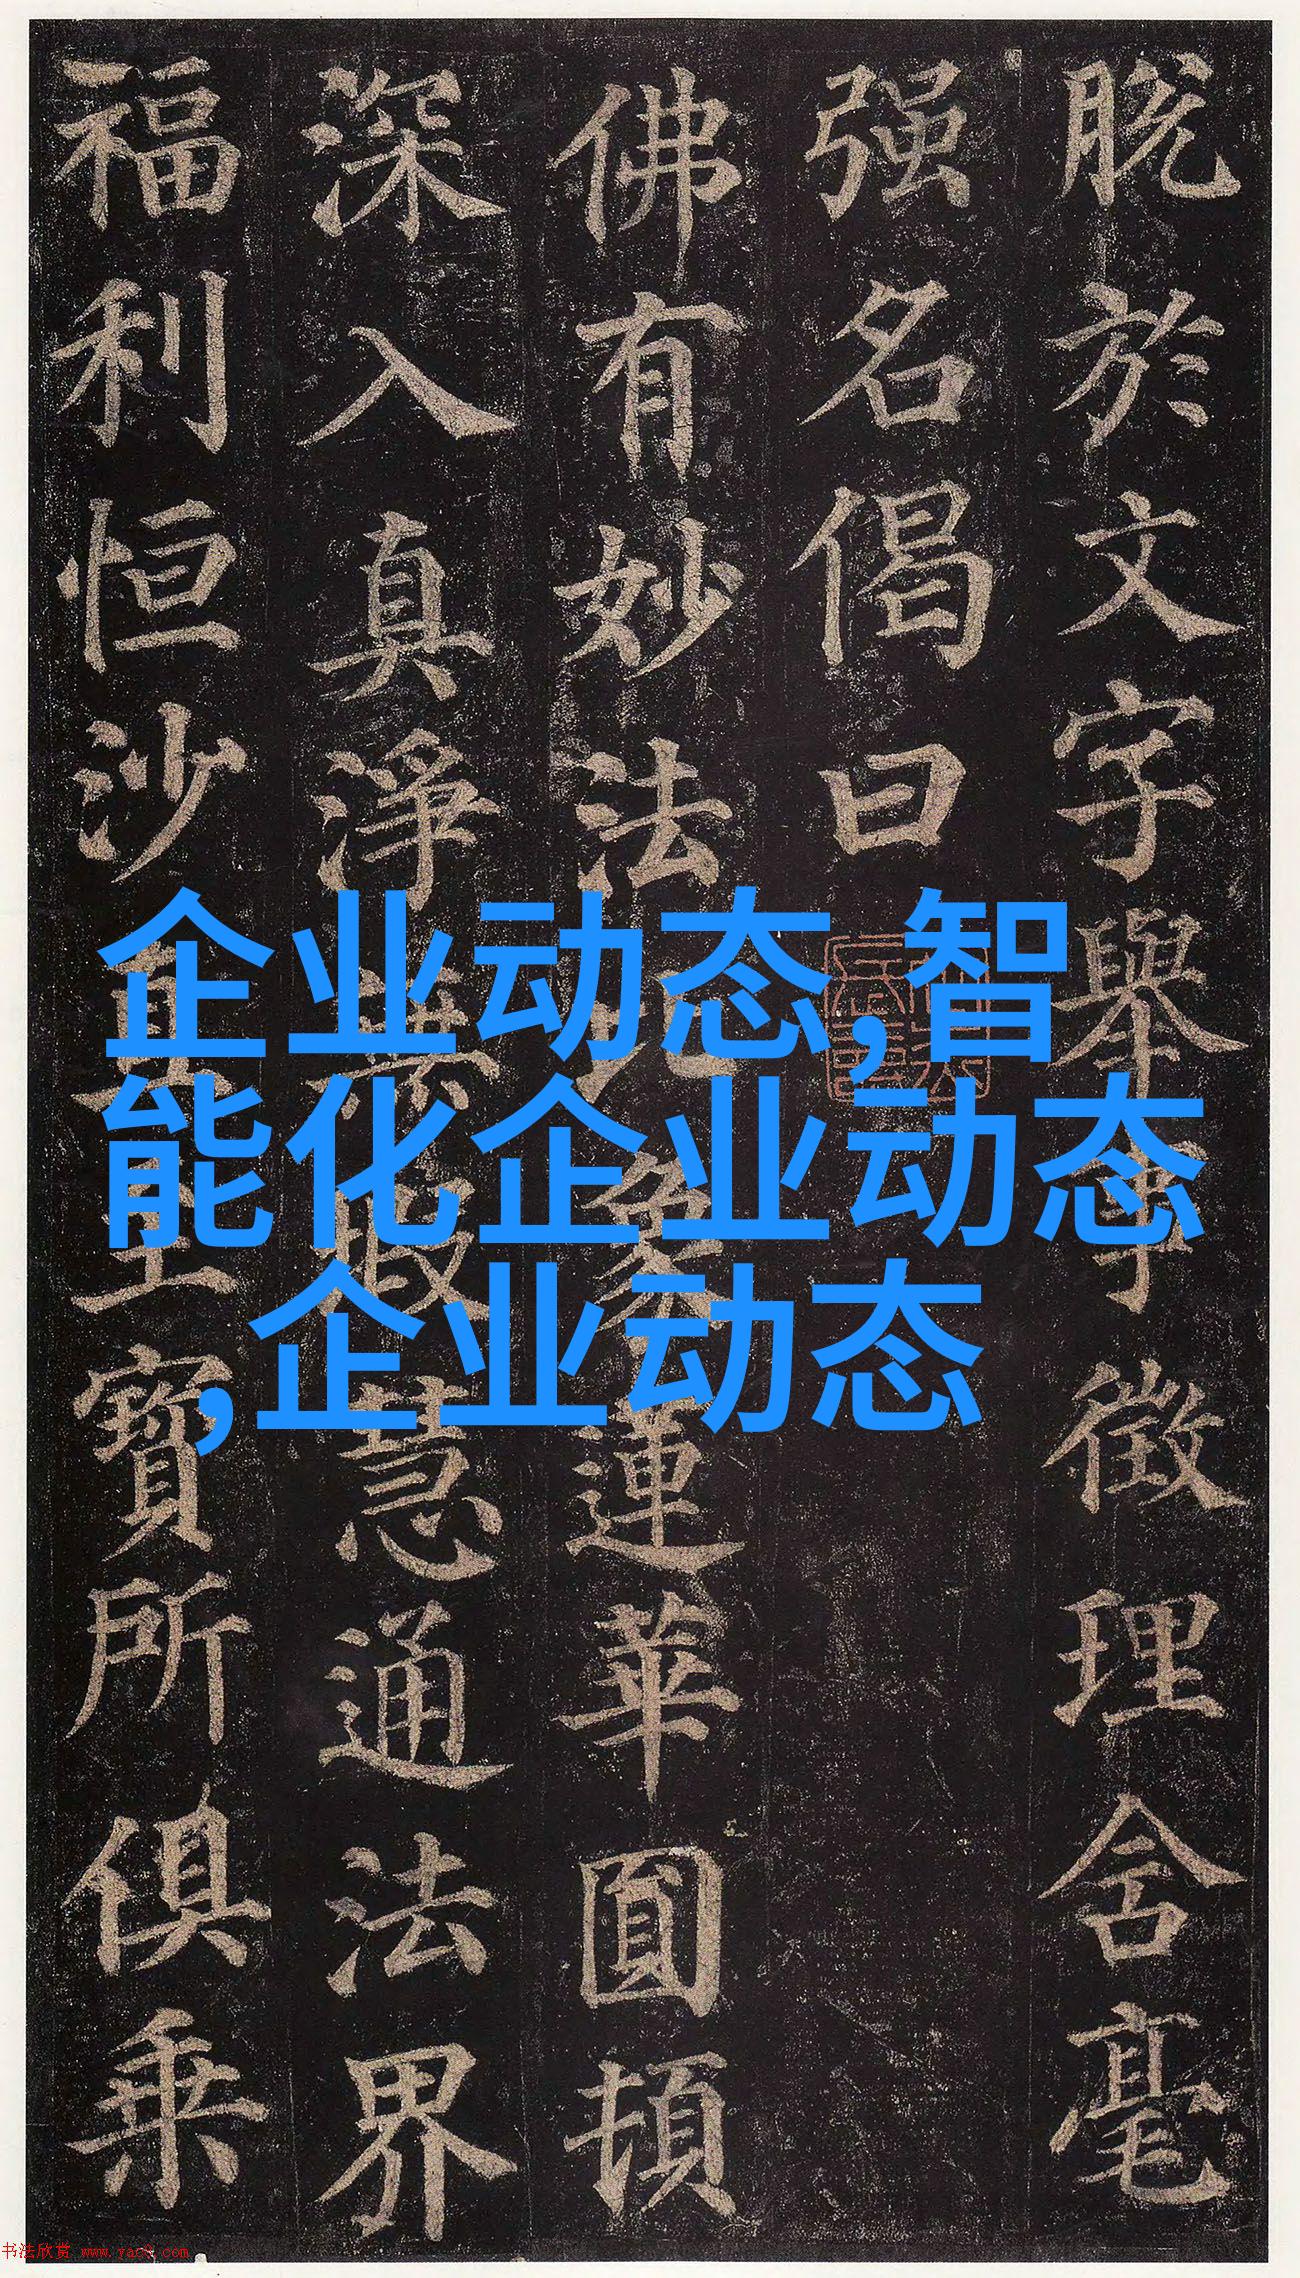 脱於文字舉事徵理含毫
强名偈曰
佛有妙法比象蓮華圓頓
深入真淨無瑕慧通法界
福利恒沙直至寶所俱乘
企业动态,智
能化企业动态
,企业动态
书法欣赏 www.yac8.com